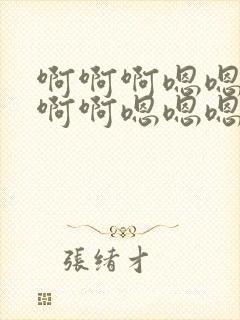 啊啊啊嗯嗯
啊啊嗯嗯嗯
張绪才